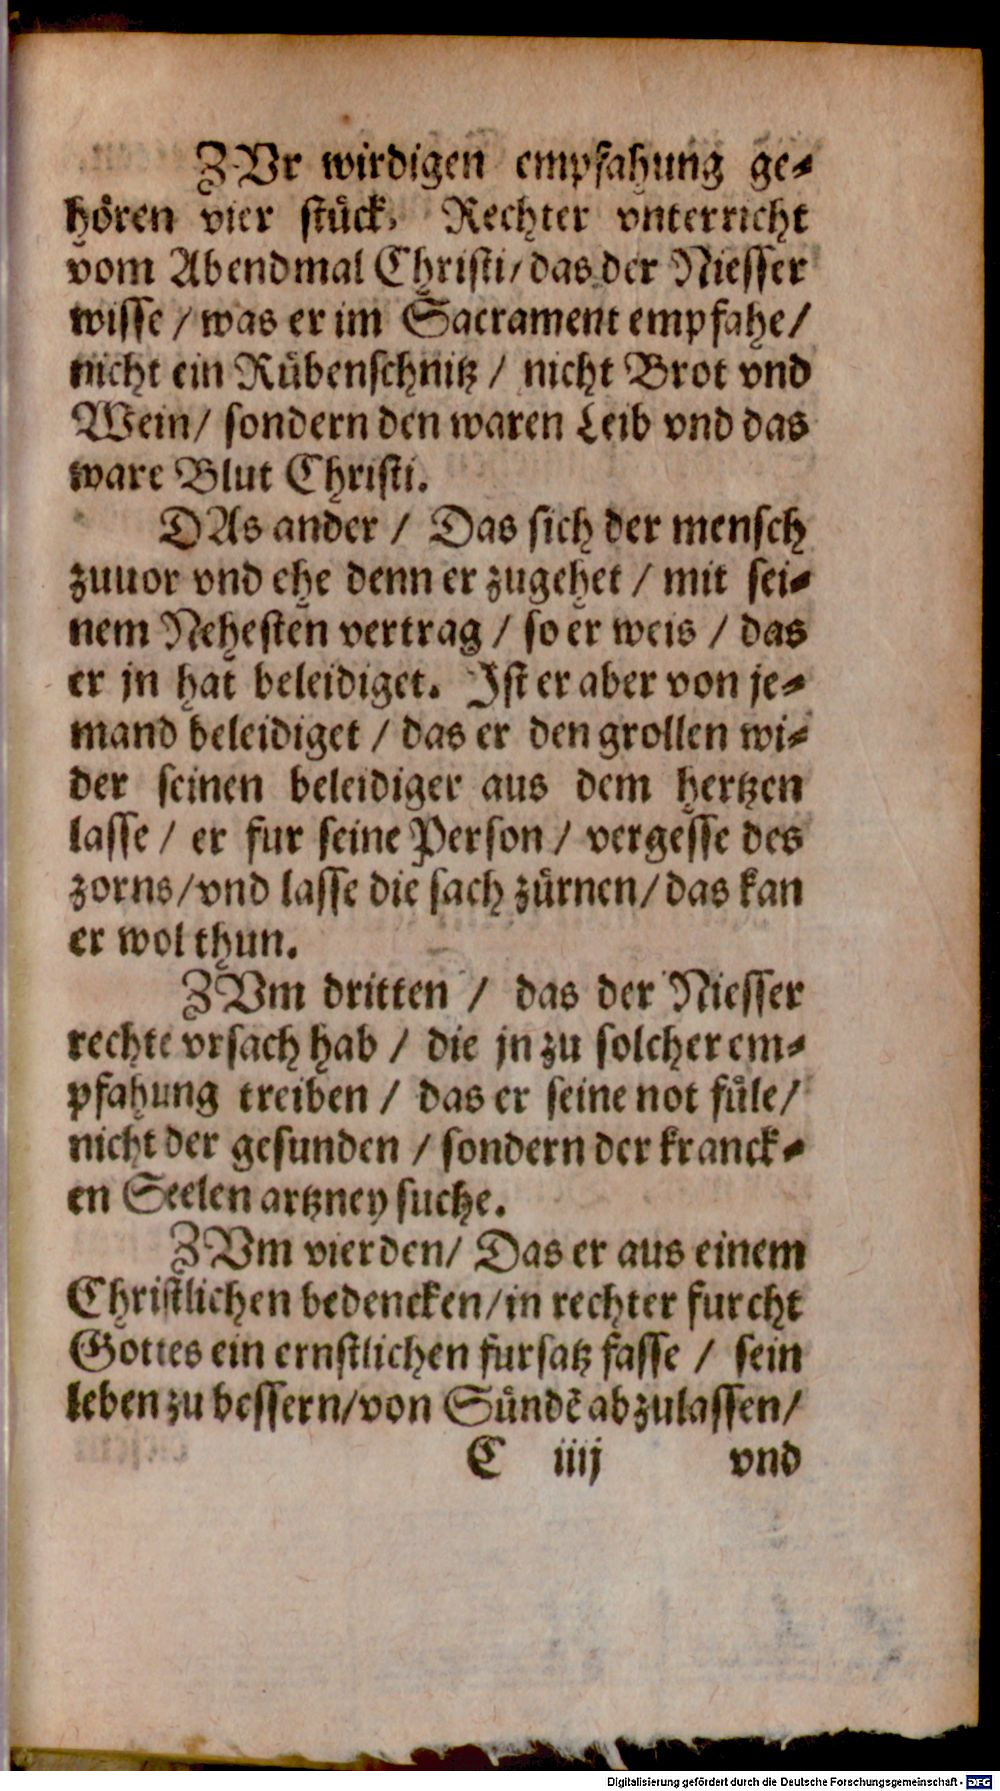 ZVr wirdigen empfahung ge-
hören vier stück, Rechter vnterricht
vom Abendmal Christi/ das der Niesser
wisse / was er im Sacrament empfahe/
nicht ein Rübenschnitz / nicht Brot vnd
Wein/ sondern den waren Leib vnd das
ware Blut Christi.
DAs ander / Das sich der mensch
zuuor vnd ehe denn er zugehet / mit sei-
nem Nehesten vertrag / so er weis / das
er jn hat beleidiget. Ist er aber von je-
mand beleidiget / das er den grollen wi-
der seinen beleidiger aus dem hertzen
lasse / er fur seine Person / vergesse des
zorns/vnd lasse die sach zürnen/ das kan
er wol thun.
ZVm dritten / das der Niesser
rechte vrsach hab / die jn zu solcher em-
pfahung treiben / das er seine not füle/
nicht der gesunden / sondern der kranck-
en Seelen artzney suche.
ZVm vierden/ Das er aus einem
Christlichen bedencken/in rechter furcht
Gottes ein ernstlichen fursatz fasse / sein
leben zu bessern/von Sündẽ abzulassen/
C iiij vnd
Digitalisierung gefördert durch die Deutsche Forschungsgemeinschaft - DFG